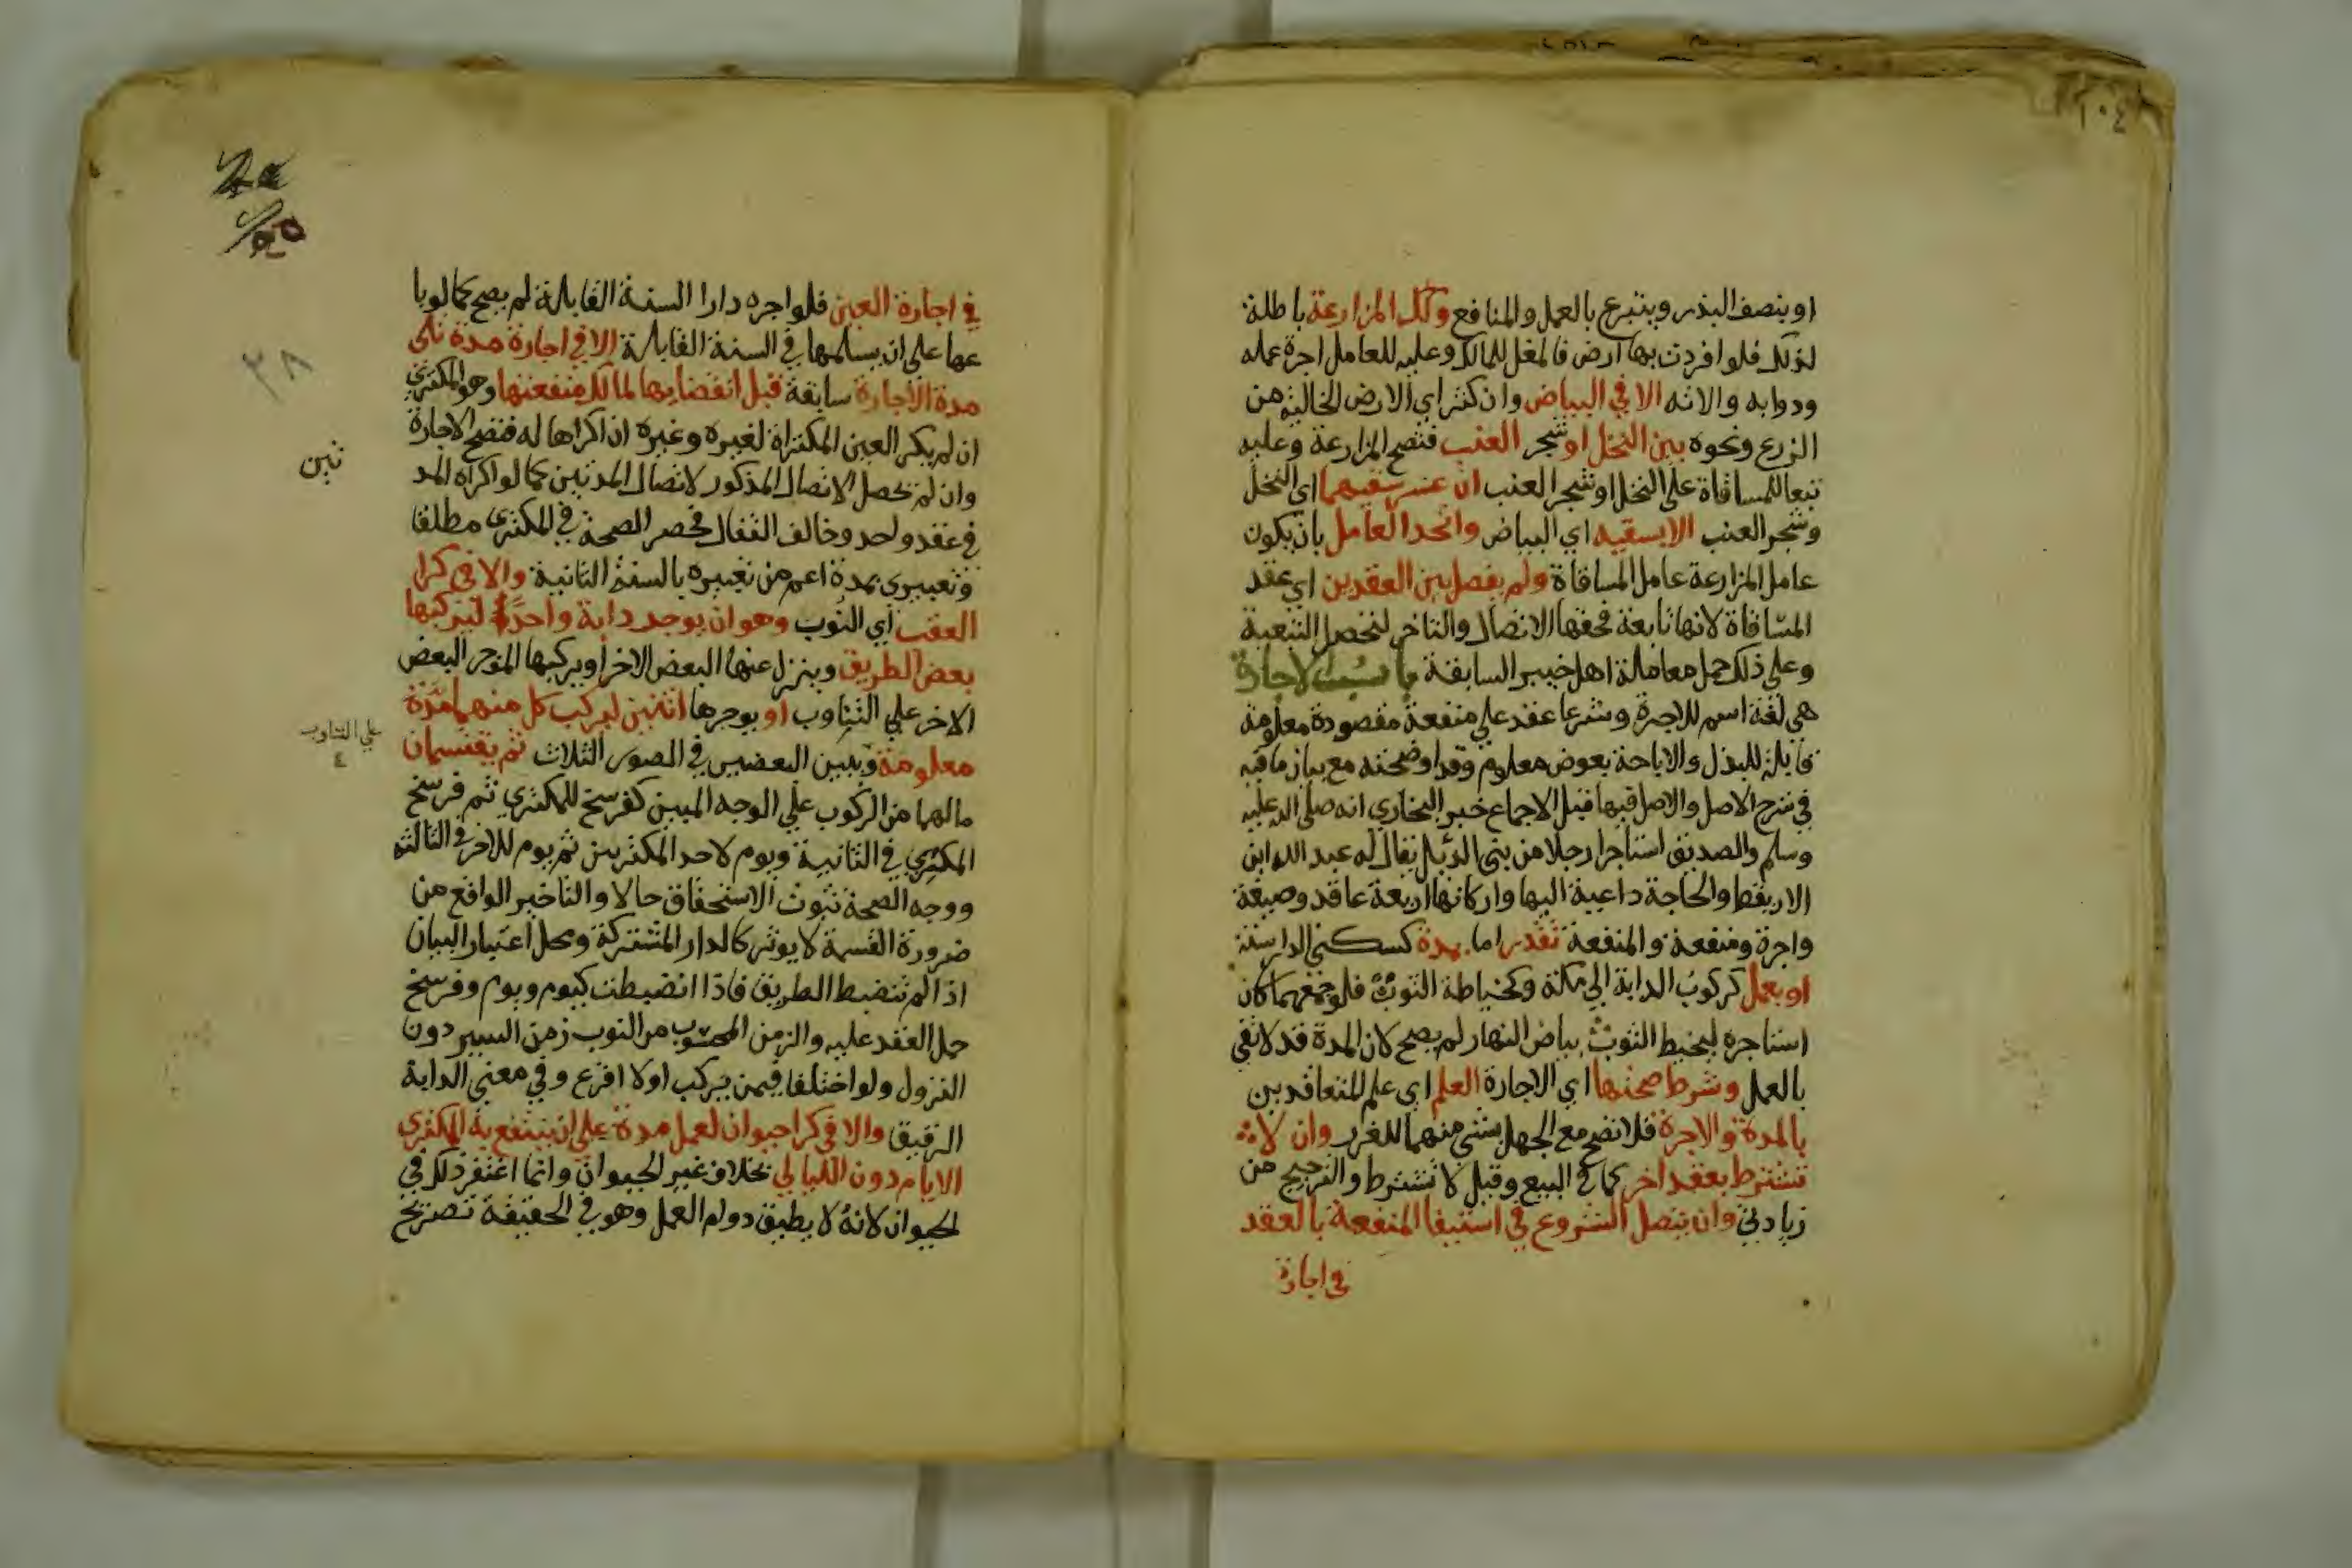 او بنصف البذر ويتبرع بالعمل والمنافع وكذا المزارعة باطلة
لذلك فلو افردت بها ارض فالمغل للمالك وعليه للعامل اجرة عمله
ودوابه والاته الا في البياض وان كثر اي الارض الخالية من
الزرع ونحوه بين النخل او شجر العنب فتصح المزارعة وعليه
تبعا للمساقاة على النخل او شجر العنب ان عسر سقيهما اي النخل
وشجر العنب الا بسقيه اي البياض واتحد العامل بان يكون
عامل المزارعة عامل المساقاة ولم يفصل بين العقدين اي عقد
المساقاة لانها تابعة فحقها الاتصال والتاخر لتحصل التبعية
وعلى ذلك حمل معاملة اهل خيبر السابقة باب الاجارة
هي لغة اسم للاجرة وشرعا عقد على منفعة مقصودة معلومة
قابلة للبذل والاباحة بعوض معلوم وقد اوضحته مع بيان ما فيه
في شرح الاصل والاصل فيها قبل الاجماع خبر البخاري انه صلى الله عليه
وسلم والصديق استاجرا رجلا من بني الديل يقال له عبد الله ابن
الاريقط والحاجة داعية اليها واركانها اربعة عاقد وصيغة
واجرة ومنفعة والمنفعة تقدر اما بمدة كسكنى الدار سنة
او بعمل كركوب الدابة الى مكة وكخياطة الثوب فلو جمعهما كان
استاجره ليخيط الثوب بياض النهار لم يصح لان المدة قد لا تفي
بالعمل وشرط صحتها اي الاجارة العلم اي علم المتعاقدين
بالمدة والاجرة فلا تصح مع الجهل بشي منهما للغرر وان لا
تشترط بعقد اخر كما في البيع وقيل لا تشترط والترجيح من
زيادتي وان يتصل الشروع في استيفا المنفعة بالعقد
في اجارة
في اجارة العين فلو اجره دارا السنة القابلة لم يصح كما لو با
عها على ان يسلمها في السنة القابلة الا في اجارة مدة تلي
مدة الاجارة سابقة قبل انقضايها لمالك منفعتها وهو المكتري
ان لم يكر العين المكتراة لغيره وغيره ان اكراها له فتصح الاجارة
وان لم يحصل الاتصال المذكور لاتصال المدتين كما لو اكراه المد
تين
في عقد واحد وخالف القفال فحصر الصحة في المكتري مطلقا
وتعبيري بمدة اعم من تعبيره بالسنة الثانية والا في كرا
العقب اي النوب وهو ان يوجر دابة واحدا ليركبها
بعض الطريق وينزل عنها البعض الاخر او يركبها الموجر البعض
الاخر على التناوب او يوجرها اثنين ليركب كل منهما مدة
على التناوب
معلومة ويبين البعضين في الصور الثلاث ثم يقتسمان
مالهما من الركوب على الوجه المبين كفرسخ للمكتري ثم فرسخ
المكتري في الثانية ويوم لاحد المكتريين ثم يوم للاخر في الثالثة
ووجه الصحة ثبوت الاستحقاق حالا والتاخير الواقع من
ضرورة القسمة لا يوثر كالدار المشتركة ومحل اعتبار البيان
اذا لم تنضبط الطريق فاذا انضبطت كيوم ويوم وفرسخ
حمل العقد عليه والزمن المحسوب من النوب زمن السير دون
النزول ولو اختلفا فيمن يركب اولا اقرع وفي معنى الدابة
الرقيق والا في كرا حيوان لعمل مدة على ان ينتفع به المكتري
الايام دون الليالي بخلاف غير الحيوان وانما اغتفر ذلك في
الحيوان لانه لا يطيق دوام العمل وهو في الحقيقة تصريح
٣٨